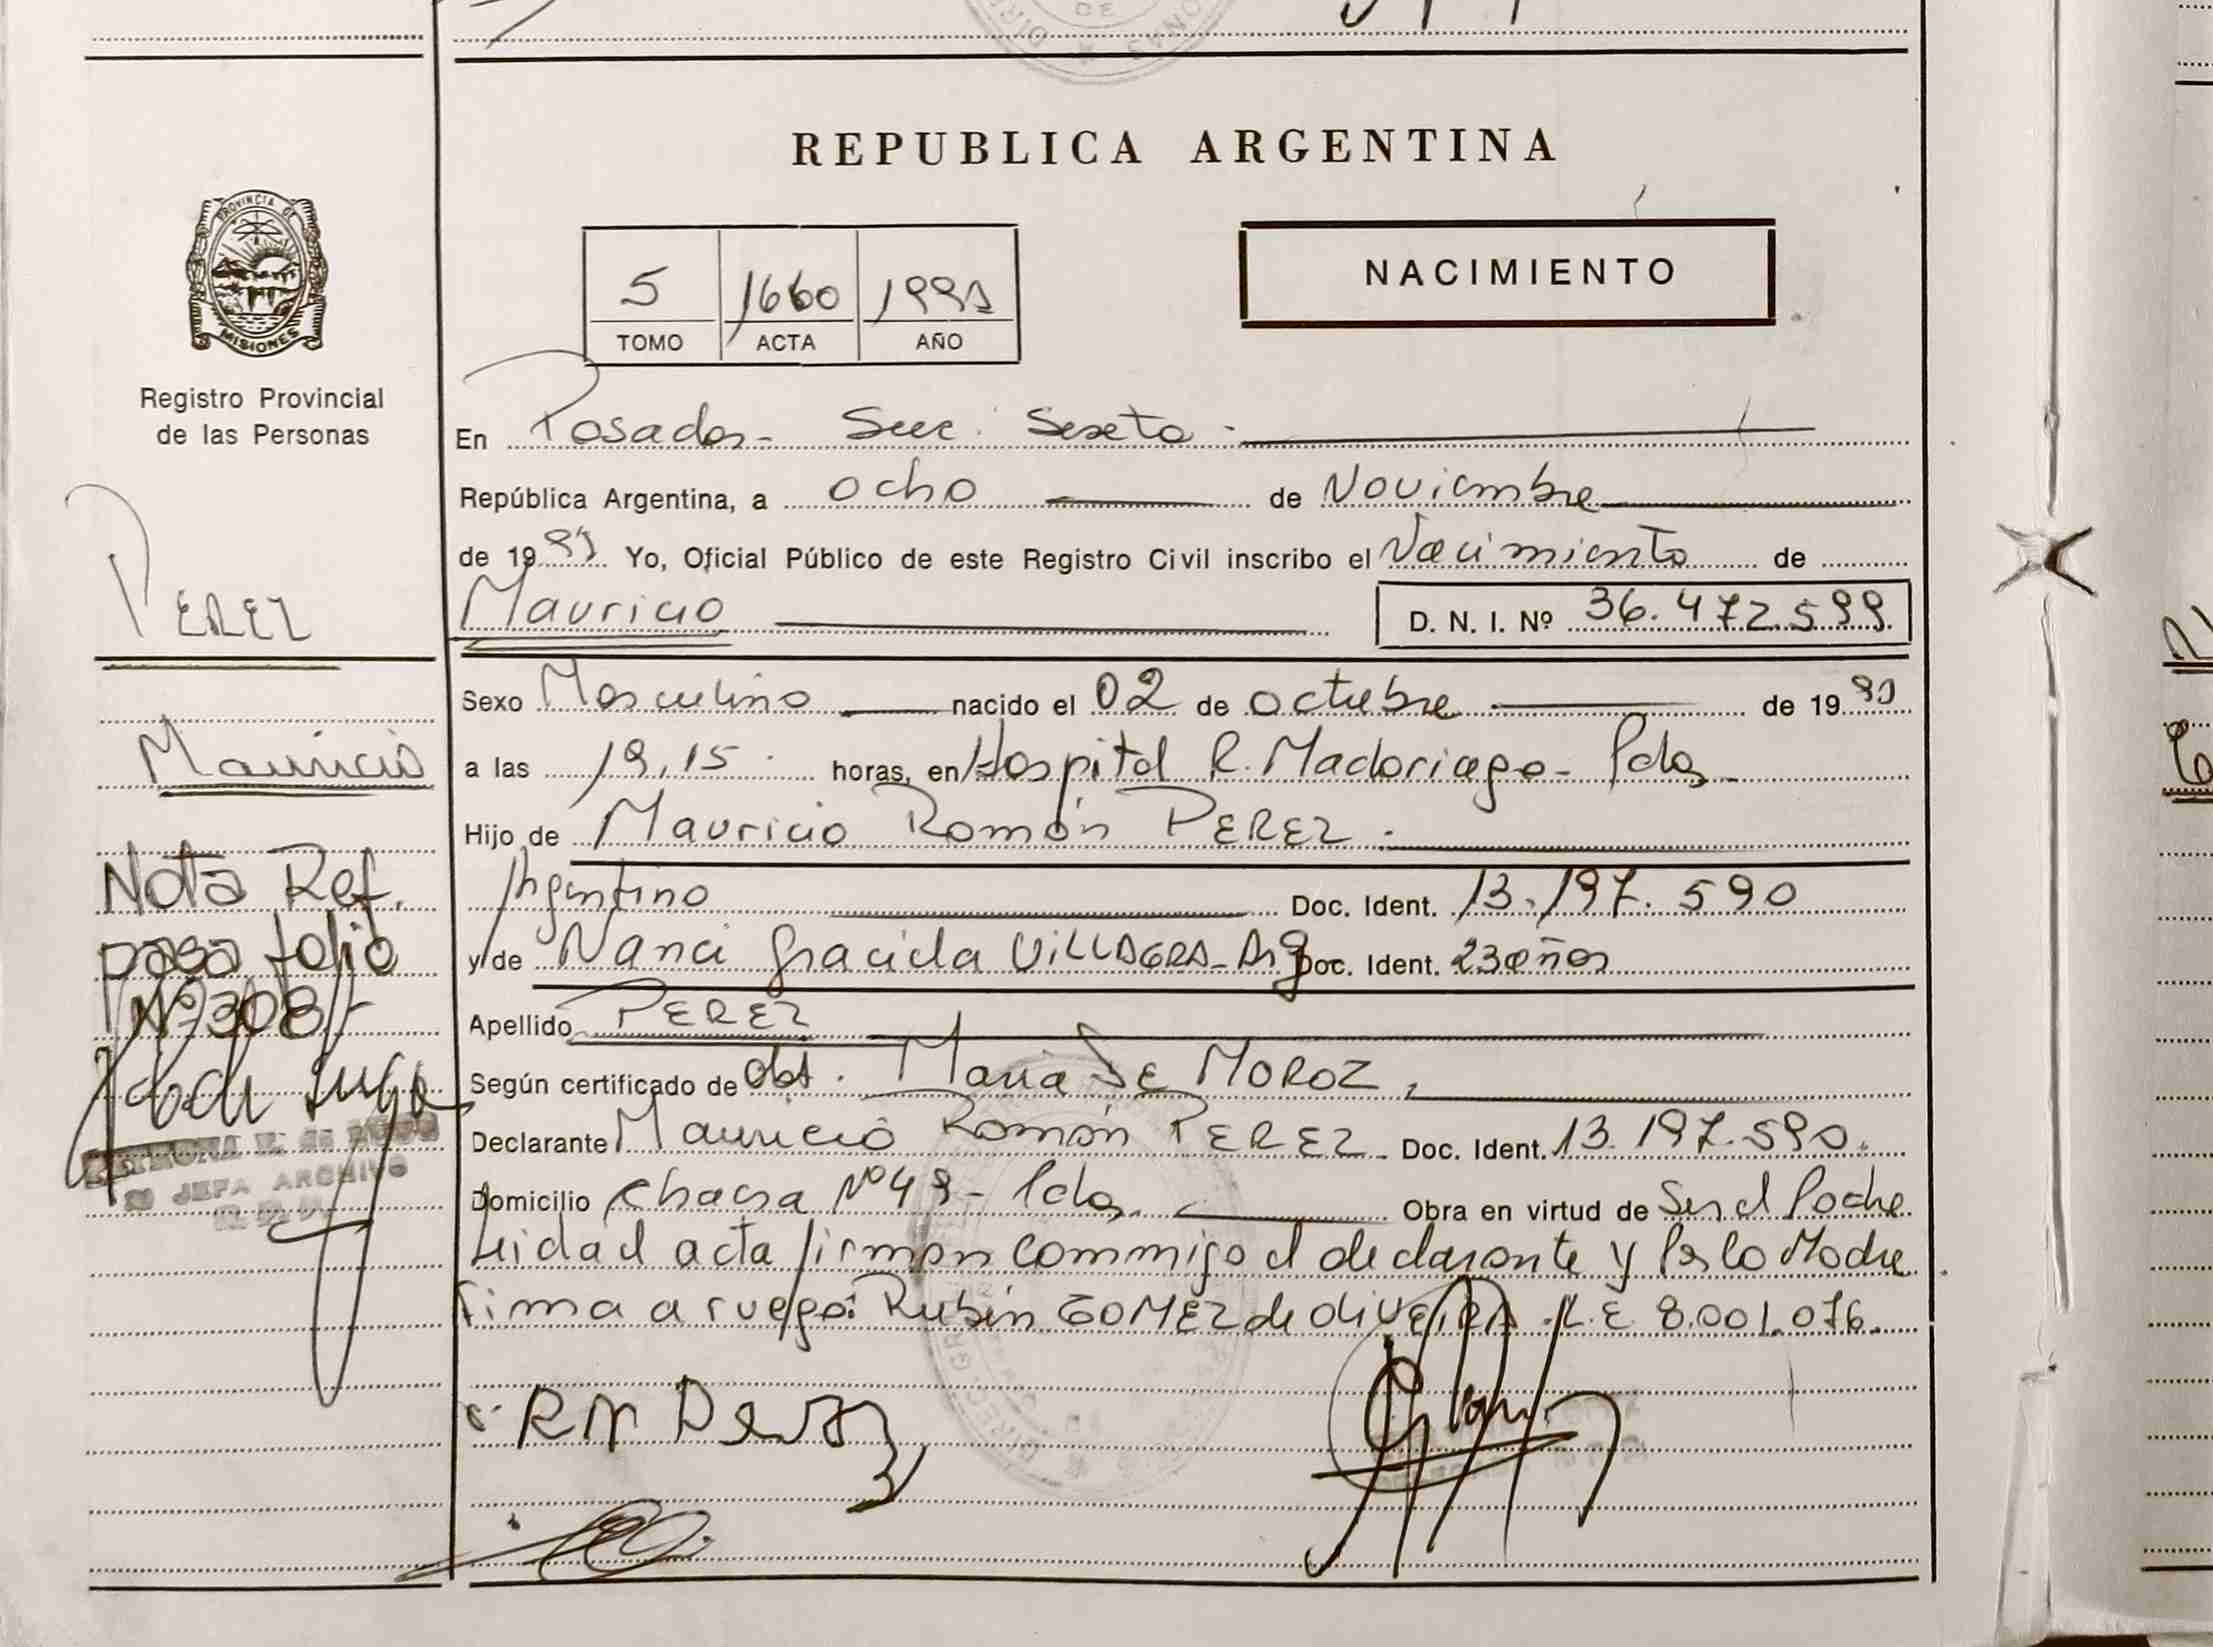 REPUBLICA ARGENTINA
PROVINCIA DE
MISIONES
Registro Provincial
de las Personas
5 1660 1991
TOMO ACTA AÑO
NACIMIENTO
En Posadas- Secc. Sexta.
República Argentina, a ocho de Noviembre
de 1991 Yo, Oficial Público de este Registro Civil inscribo el Nacimiento de
Mauricio D. N. I. Nº 36.472.599
PEREZ
Mauricio
Sexo Masculino nacido el 02 de octubre de 1991
a las 19,15. horas, en Hospital R. Madariaga- Pdas.
Hijo de Mauricio Román PEREZ.
Argentino Doc. Ident. 13.197.590
y de Nanci Graciela VILLAGRA- Arg Doc. Ident. 23 años
Apellido PEREZ
Según certificado de obst. Maria de MOROZ,
Declarante Mauricio Román PEREZ- Doc. Ident. 13.197.590.
Domicilio chacra Nº 49- Pdas. Obra en virtud de Ser el Padre
Leida el acta firman conmigo el declarante y Por la Madre
firma a ruego: Rubén GOMEZ de OliVEIRA. L.E 8.001.076.
Nota Ref.
pasa folio
Nº 308/-
JEFA ARCHIVO